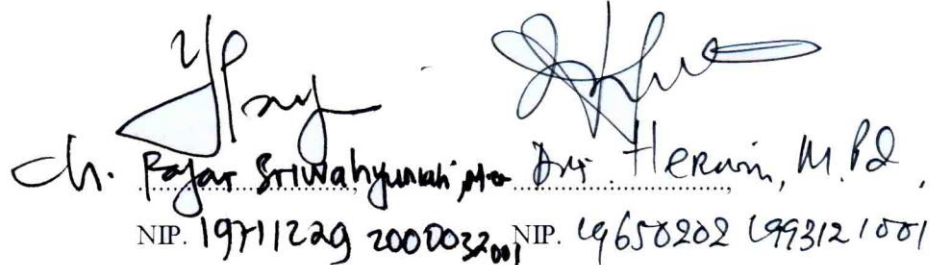 Ch. Fajar Sriwahyuniati, M.Or Drs. Herwin, M.Pd.
NIP. 19711229 200003 2 001 NIP. 19650202 199312 1 001